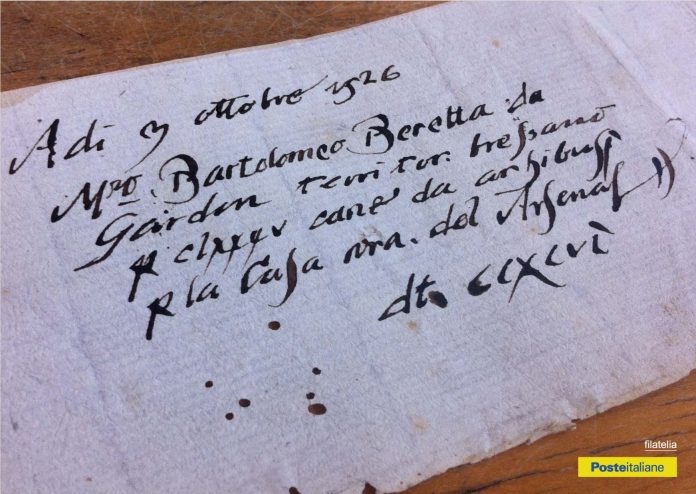 A di 3 ottobre 1526
Mro. Bartolomeo Beretta da
Gardon territor. bressano
p clxxxv cane da archibusi
p la Casa nra. del Arsenal
dt. cclxcvi
filatelia
Posteitaliane